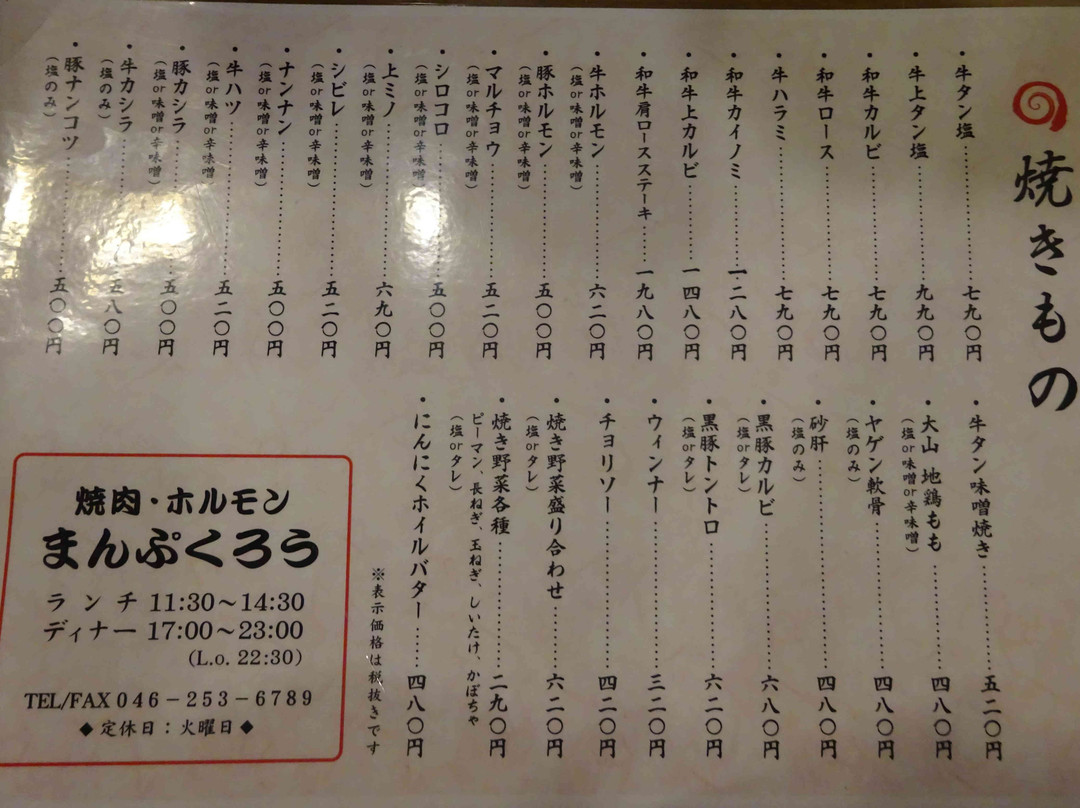 焼きもの
・牛タン塩……七九〇円
・牛上タン塩……九九〇円
・和牛カルビ……七九〇円
・和牛ロース……七九〇円
・牛ハラミ……七九〇円
・和牛カイノミ……一二八〇円
・和牛上カルビ……一四八〇円
・和牛肩ロースステーキ……一九八〇円
・牛ホルモン……六二〇円
(塩or味噌or辛味噌)
・豚ホルモン……五〇〇円
(塩or味噌or辛味噌)
・マルチョウ……五二〇円
(塩or味噌or辛味噌)
・シロコロ……五〇〇円
(塩or味噌or辛味噌)
・上ミノ……六九〇円
(塩or味噌or辛味噌)
・シビレ……五二〇円
(塩or味噌or辛味噌)
・ナンナン……五〇〇円
(塩or味噌or辛味噌)
・牛ハツ……五二〇円
(塩or味噌or辛味噌)
・豚カシラ……五〇〇円
(塩or味噌or辛味噌)
・牛カシラ……五八〇円
(塩のみ)
・豚ナンコツ……五〇〇円
(塩のみ)
・牛タン味噌焼き……五二〇円
・大山 地鶏もも……四八〇円
(塩or味噌or辛味噌)
・ヤゲン軟骨……四八〇円
(塩のみ)
・砂肝……四八〇円
(塩のみ)
・黒豚カルビ……六八〇円
(塩orタレ)
・黒豚トントロ……六二〇円
(塩orタレ)
・ウィンナー……三二〇円
・チョリソー……四二〇円
・焼き野菜盛り合わせ……六二〇円
(塩orタレ)
・焼き野菜各種……二九〇円
ピーマン、長ねぎ、玉ねぎ、しいたけ、かぼちゃ
(塩orタレ)
・にんにくホイルバター……四八〇円
※表示価格は税抜きです
焼肉・ホルモン
まんぷくろう
ランチ 11:30〜14:30
ディナー 17:00〜23:00
(L.o. 22:30)
TEL/FAX 046－253－6789
◆定休日：火曜日◆